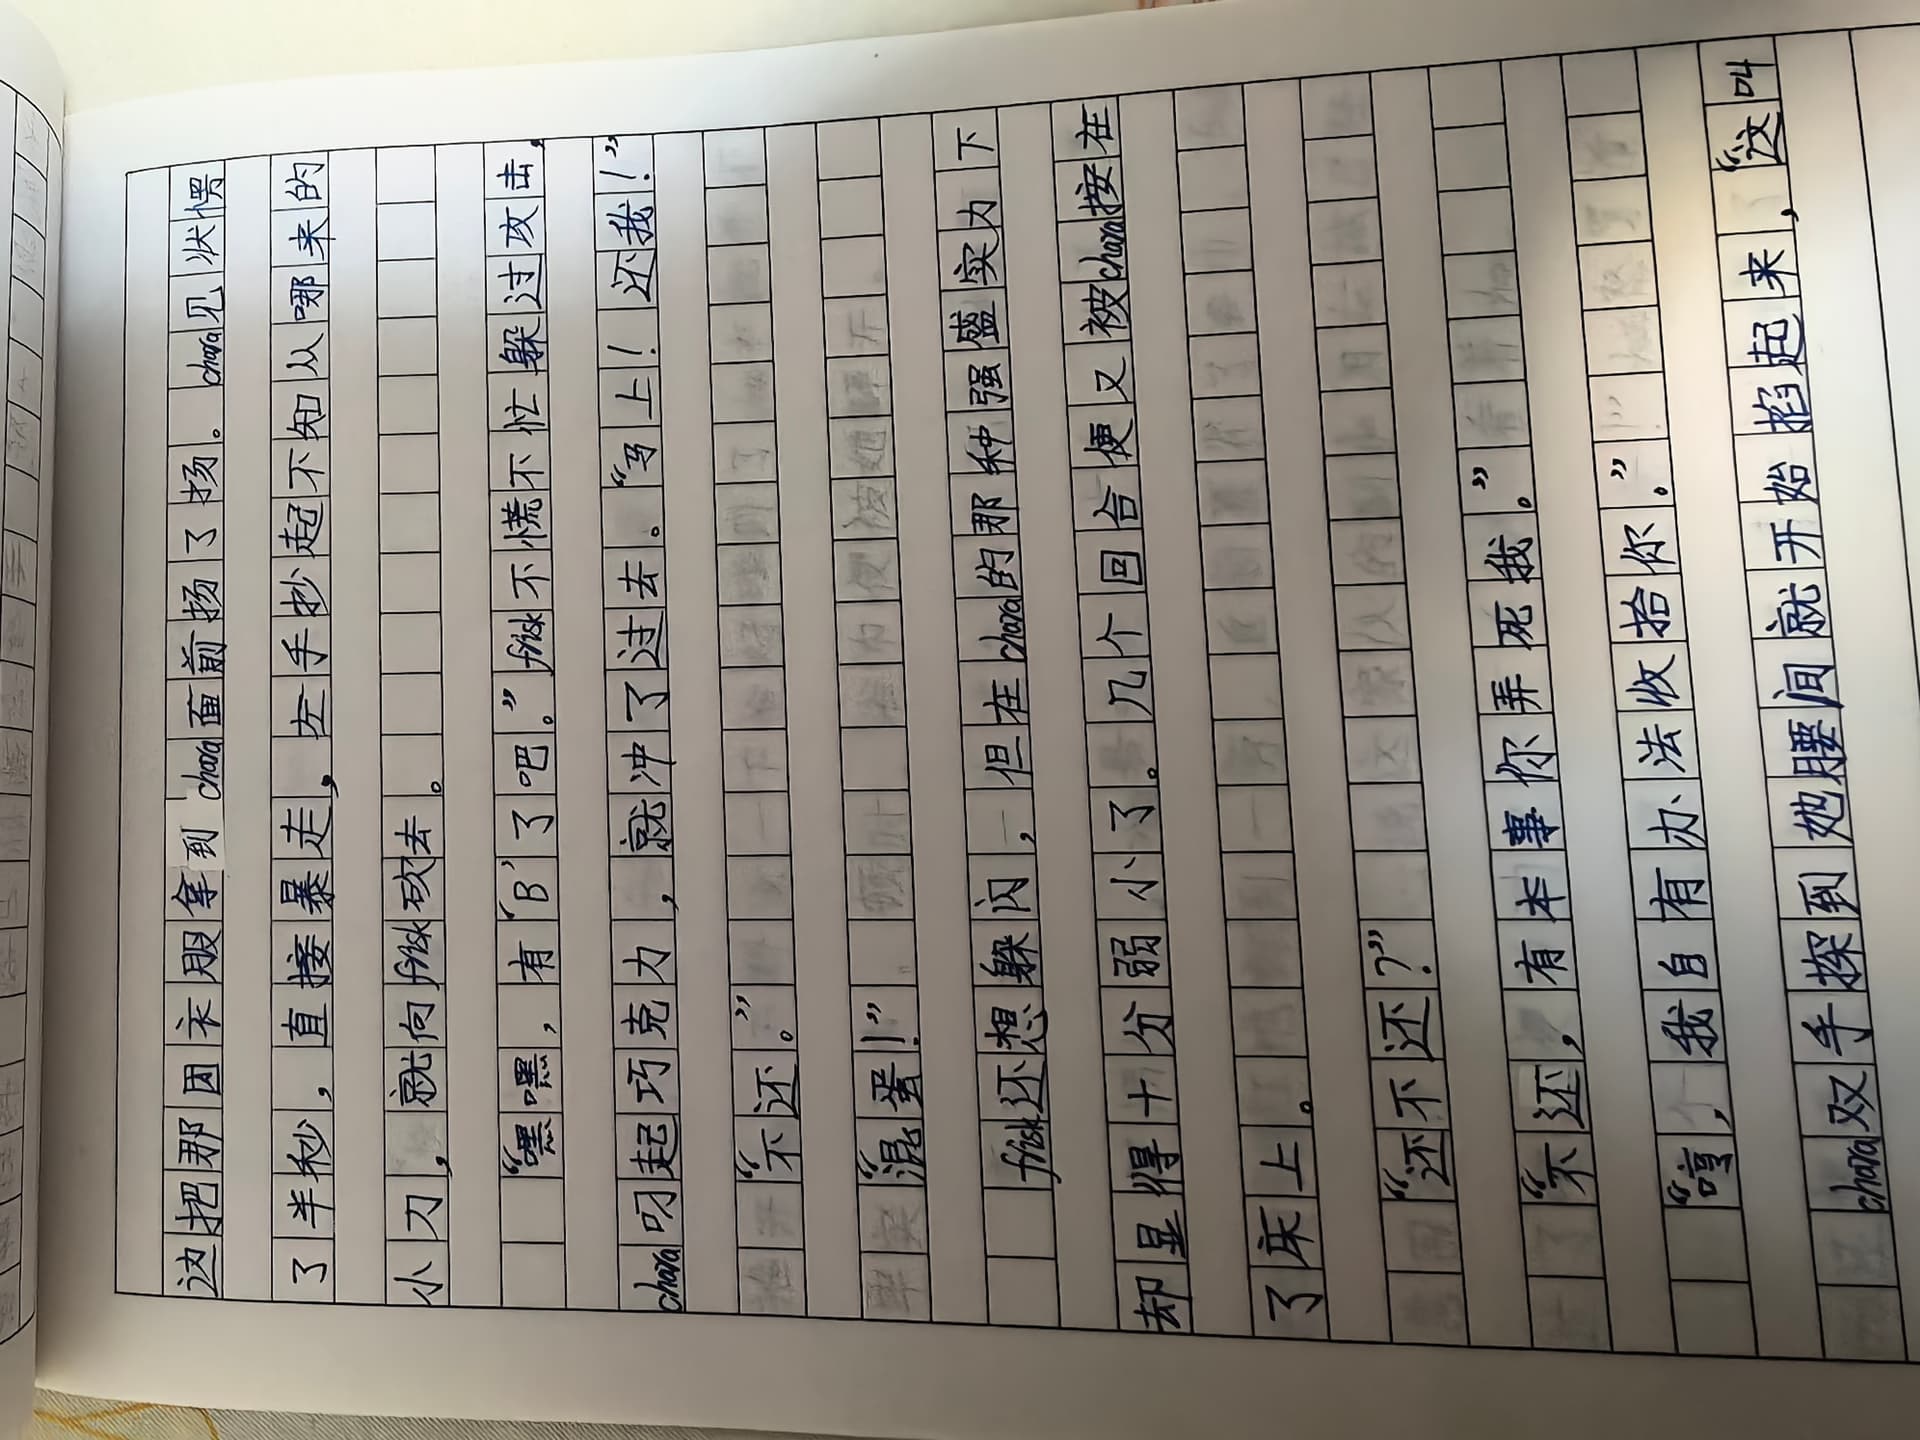 边把那团衣服拿到chara面前扬了扬。chara见状愣
了半秒，直接暴走，左手抄起不知从哪来的
小刀，就向frisk砍去。
“嘿嘿，有‘B’了吧。”frisk不慌不忙躲过攻击，
chara叼起巧克力，就冲了过去。“马上！还我！”
“不还。”
“混蛋！”
frisk还想躲闪，但在chara的那种强盛实力下
却显得十分弱小了。几个回合便又被chara按在
了床上。
“还不还？”
“不还，有本事你弄死我。”
“哼，我自有办法收拾你。”
chara双手探到她腰间就开始掐起来，“这叫